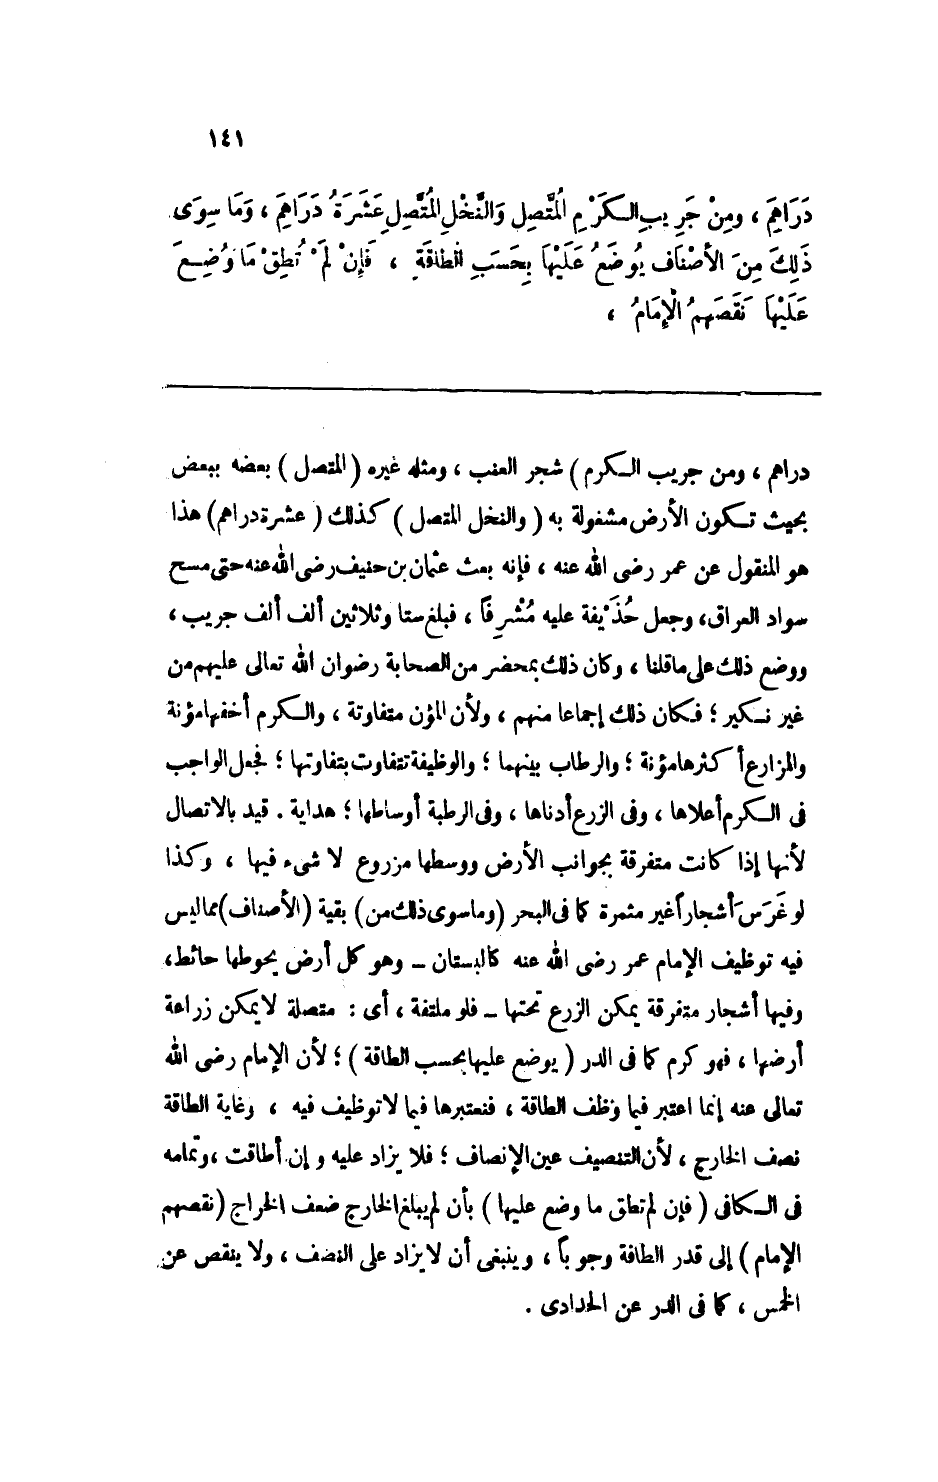 ١٤١
دَرَاهِمَ ، ومِنْ جَرِيبِ الْكَرْمِ الْمُتَّصِلِ وَالنَّخْلِ الْمُتَّصِلِ عَشَرَةُ دَرَاهِمَ ، وَمَا سِوَى
ذَلِكَ مِنَ الأَصْنَافِ يُوضَعُ عَلَيْهَا بِحَسَبِ الْطاقَةِ ، فَإِنْ لَمْ تُطِقْ مَا وُضِعَ
عَلَيْهَا نَقَصَهمُ الْإِمَامُ ،
دراهم ، ومن جريب الكرم ) شجر العنب ، ومثله غيره ( المتصل ) بعضه ببعض
بحيث تكون الأرض مشغولة به ( والنخل المتصل ) كذلك ( عشرة دراهم ) هذا
هو المنقول عن عمر رضى الله عنه ، فإنه بعث عثمان بن حنيف رضى الله عنه حتى مسح
سواد العراق، وجعل حُذَيْفة عليه مُشْرِفاً ، فبلغ ستا وثلاثين ألف ألف جريب ،
ووضع ذلك على ماقلنا ، وكان ذلك بمحضر من الصحابة رضوان الله تعالى عليهم من
غير نكير ؛ فكان ذلك إجماعا منهم ، ولأن المؤن متفاوتة ، والكرم أخفها مؤنة
والمزارع أكثرها مؤنة ؛ والرطاب بينهما ؛ والوظيفة تتفاوت بتفاوتها ؛ فجعل الواجب
فى الكرم أعلاها ، وفى الزرع أدناها ، وفى الرطبة أوساطها ؛ هداية . قيد بالاتصال
لأنها إذا كانت متفرقة بجوانب الأرض ووسطها مزروع لا شىء فيها ، وكذا
لو غَرَسَ أشجاراً غير مثمرة كما فى البحر ( وما سوى ذلك من ) بقية ( الأصناف ) مما ليس
فيه توظيف الإمام عمر رضى الله عنه كالبستان ــ وهو كل أرض يحوطها حائط،
وفيها أشجار متفرقة يمكن الزرع تحتها ــ فلو ملتفة ، أى : متصلة لا يمكن زراعة
أرضها ، فهو كرم كما فى الدر ( يوضع عليها بحسب الطاقة ) ؛ لأن الإمام رضى الله
تعالى عنه إنما اعتبر فيما وظف الطاقة ، فنعتبرها فيما لا توظيف فيه ، وغاية الطاقة
نصف الخارج ، لأن التنصيف عين الإنصاف ؛ فلا يزاد عليه و إن أطاقت ، وتمامه
فى الكافى ( فإن لم تطق ما وضع عليها ) بأن لم يبلغ الخارج ضعف الخراج ( نقصهم
الإمام ) إلى قدر الطاقة وجوباً ، وينبغى أن لا يزاد على النصف ، ولا ينقص عن
الخمس ، كما فى الدر عن الحدادى .